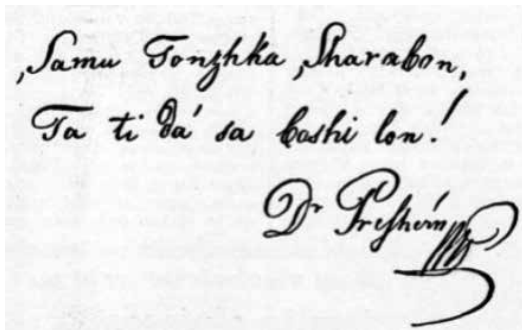 ‚Samu Tonzhka ‚Sharabon,
Ta ti dá sa boshi lon!
Dr Preshérn